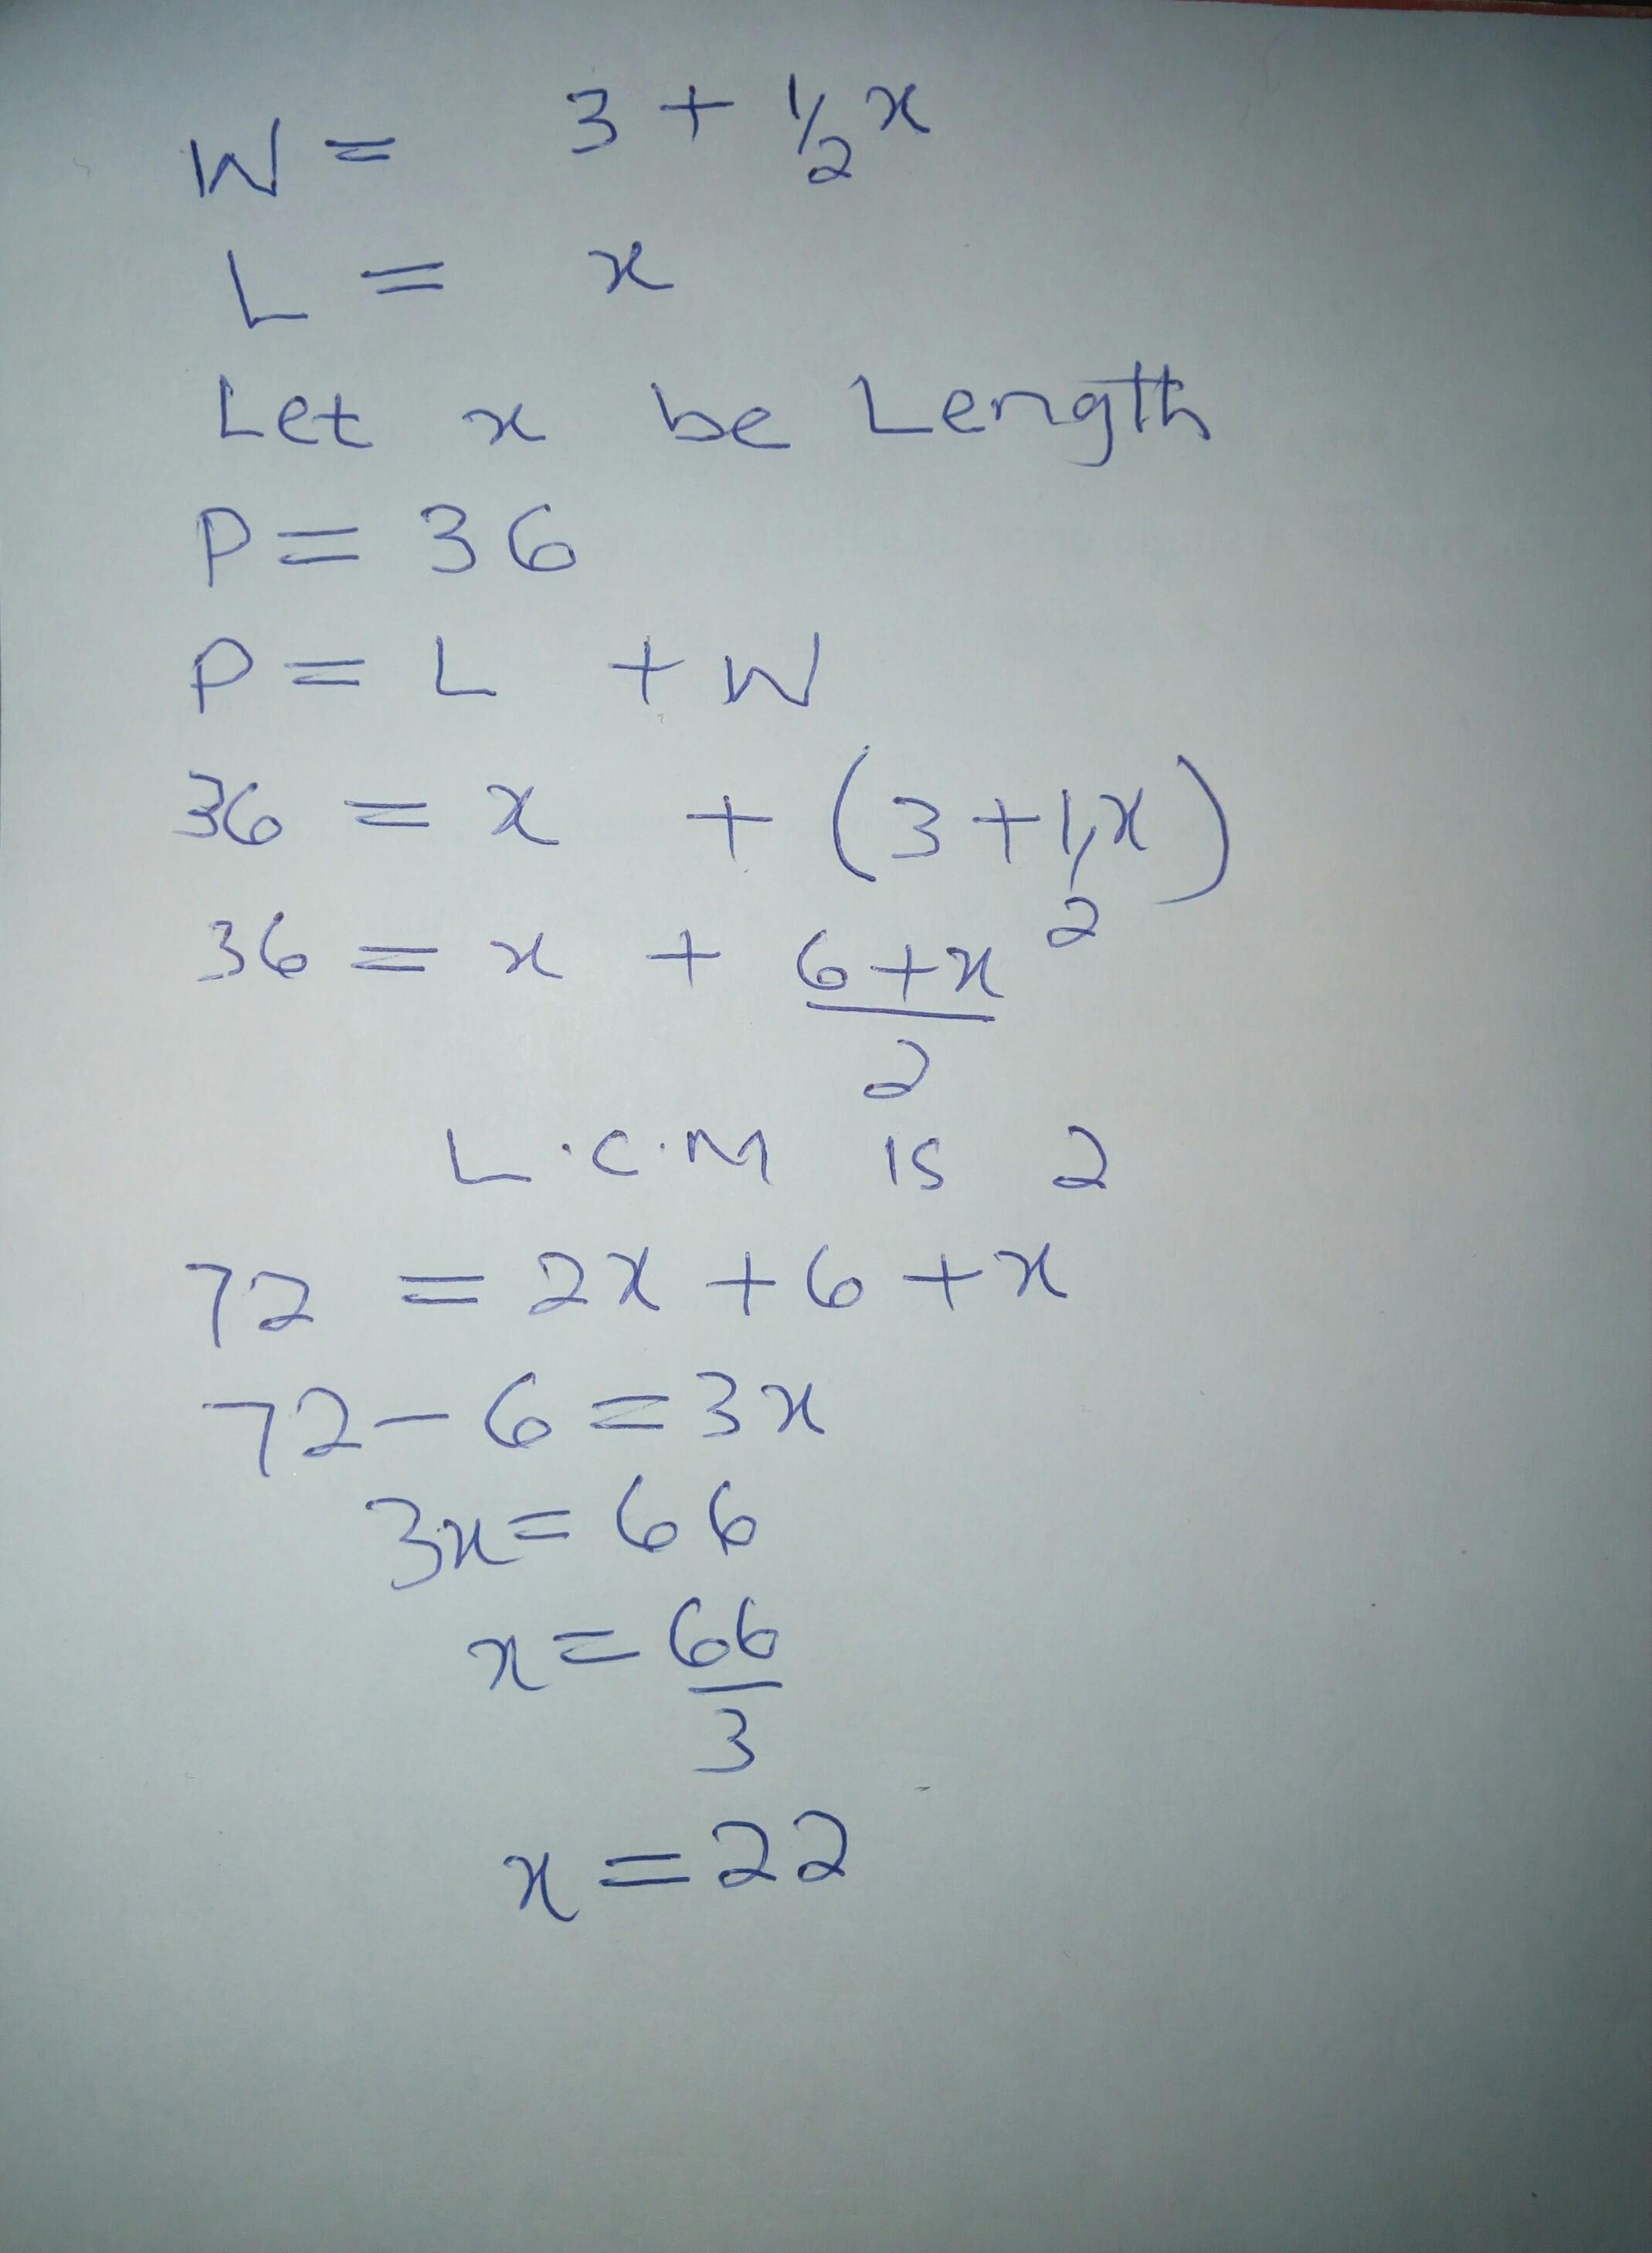 W = 3 + 1/2 x
L = x
Let x be Length
P = 36
P = L + W
36 = x + (3 + 1/2 x)
36 = x + 6 + x
2
L.C.M is 2
72 = 2x + 6 + x
72 - 6 = 3x
3x = 66
x = 66
3
x = 22